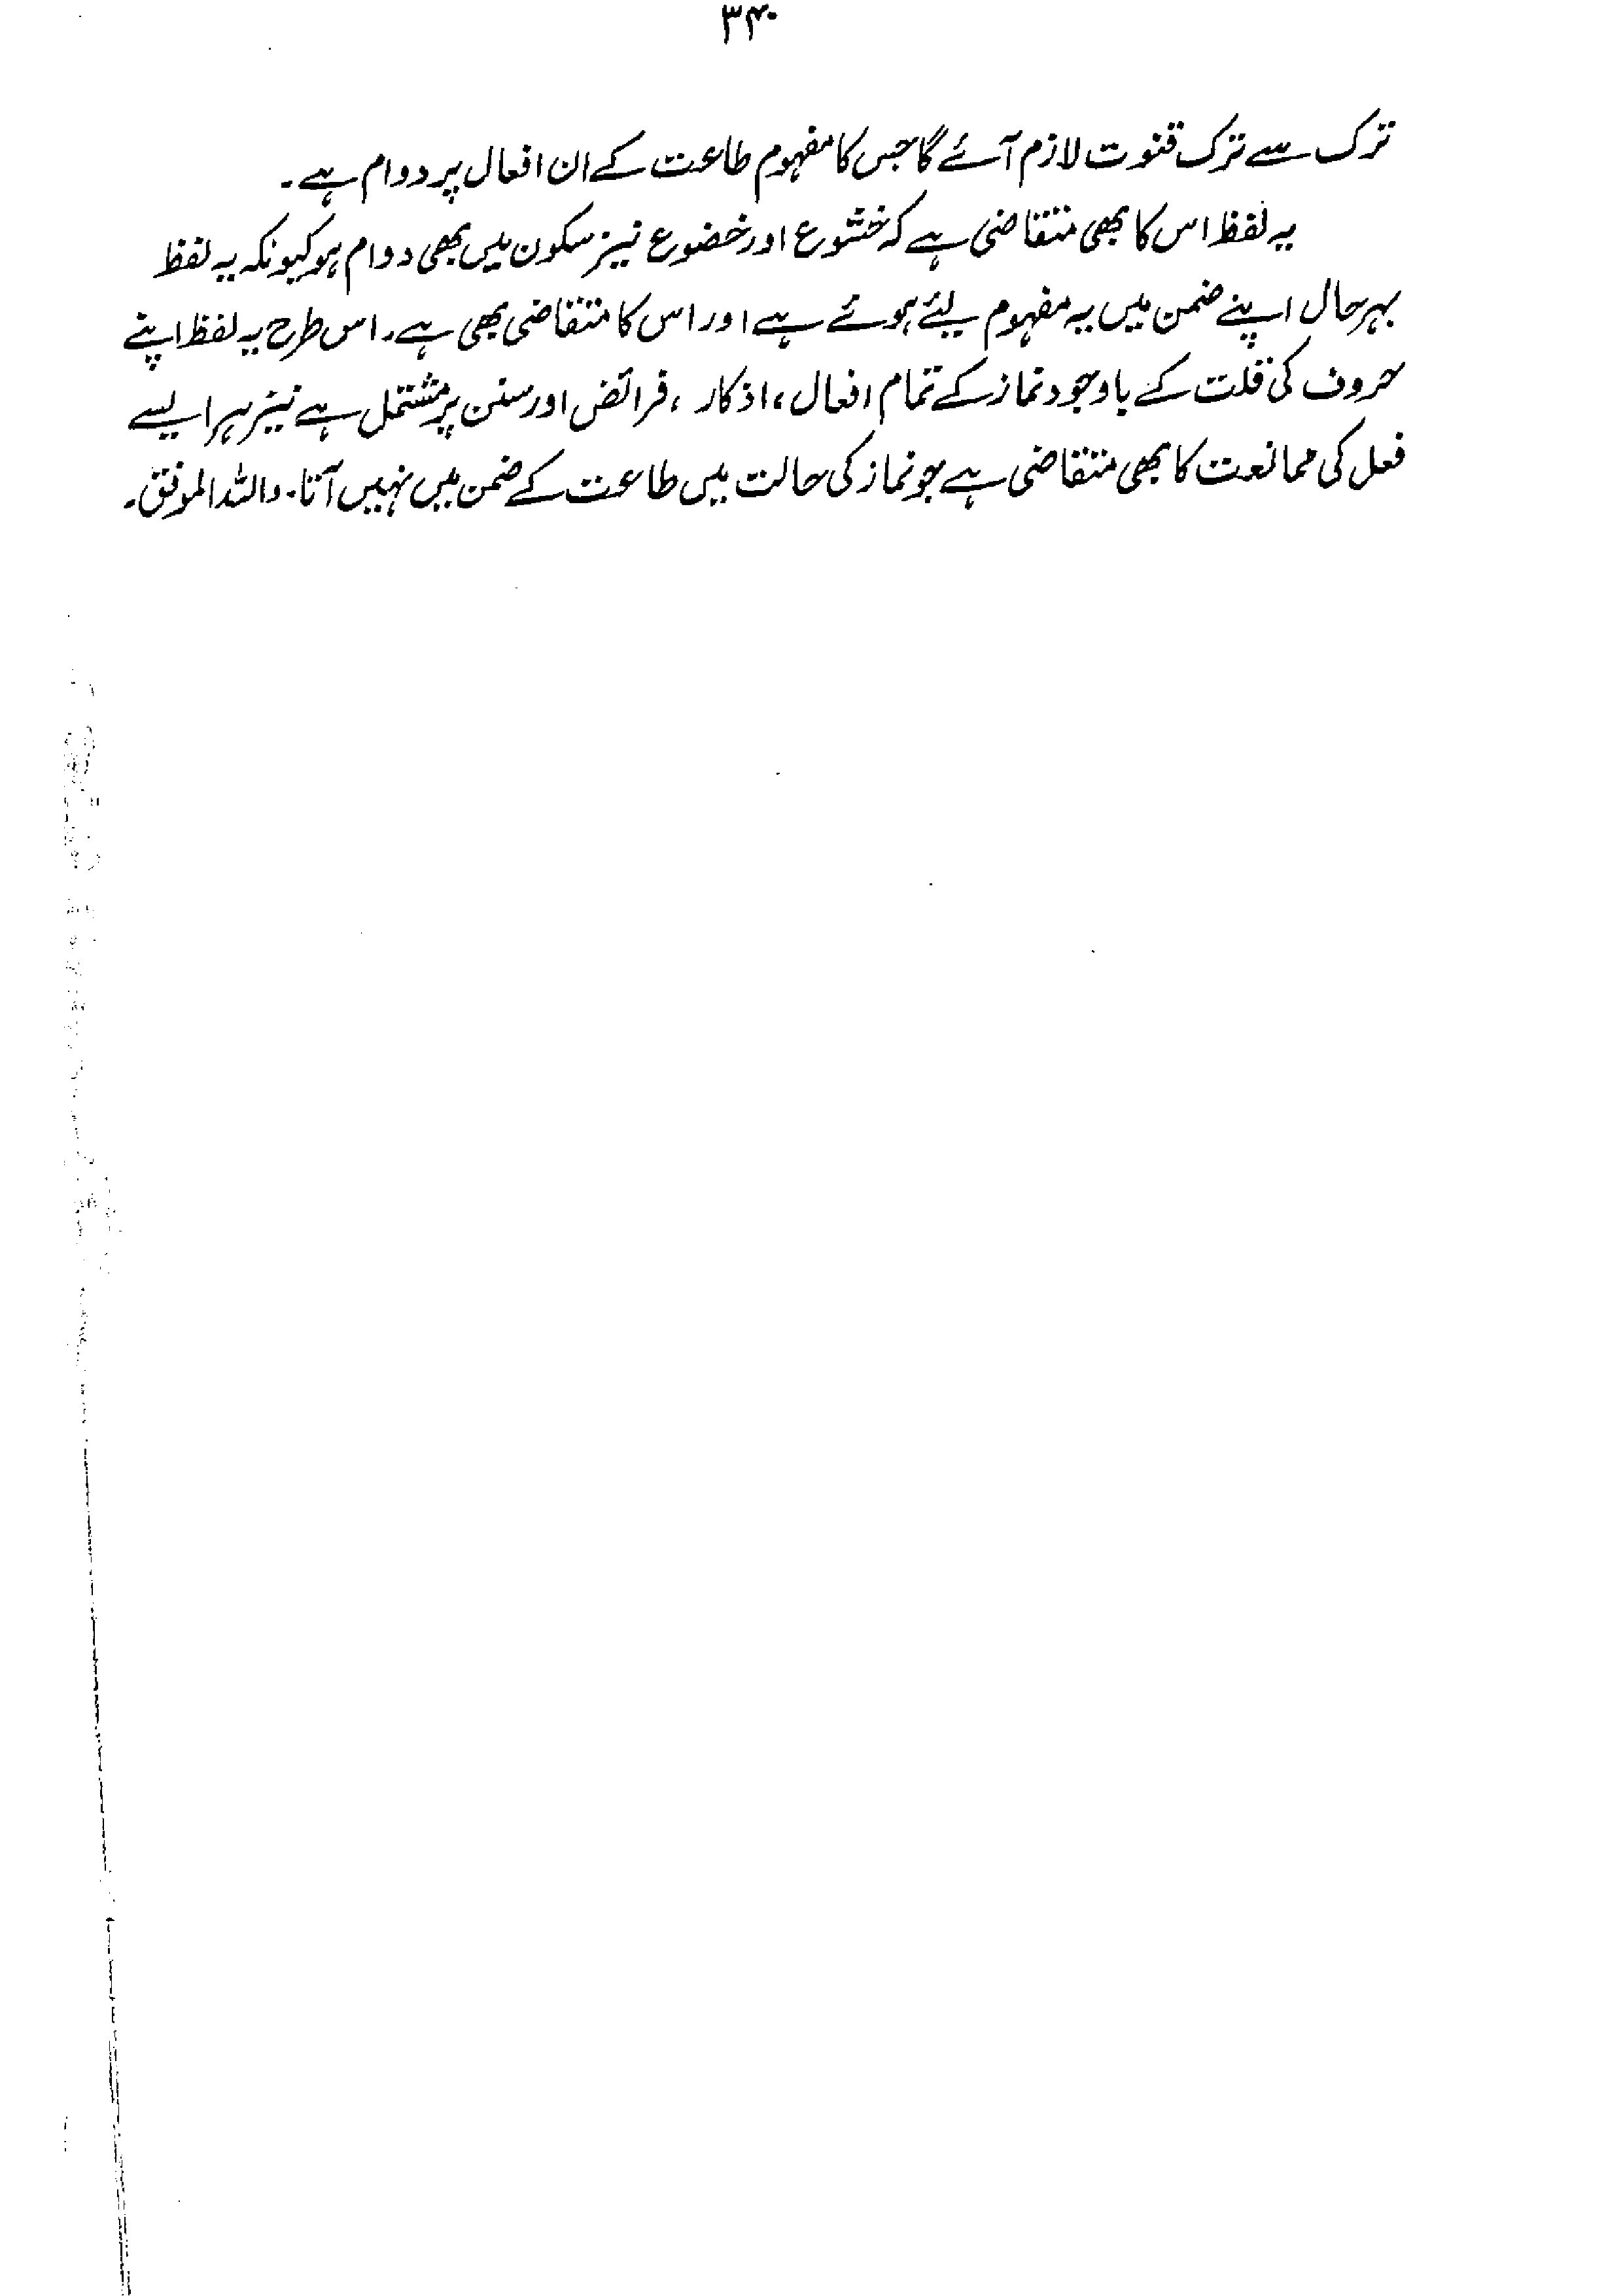 ۳۴۰
ترک سے ترک قنوت لازم آئے گا جس کا مفہوم طاعت کے ان افعال پر دوام ہے۔
یہ لفظ اس کا بھی متقاضی ہے کہ خشوع اور خضوع نیز سکون میں بھی دوام ہو کیونکہ یہ لفظ
بہرحال اپنے ضمن میں یہ مفہوم لیئے ہوئے ہے اور اس کا متقاضی بھی ہے۔ اس طرح یہ لفظ اپنے
حروف کی قلت کے باوجود نماز کے تمام افعال، اذکار، فرائض اور سنن پر مشتمل ہے نیز ہر ایسے
فعل کی ممانعت کا بھی متقاضی ہے جو نماز کی حالت میں طاعت کے ضمن میں نہیں آتا۔ واللہ الموفق۔